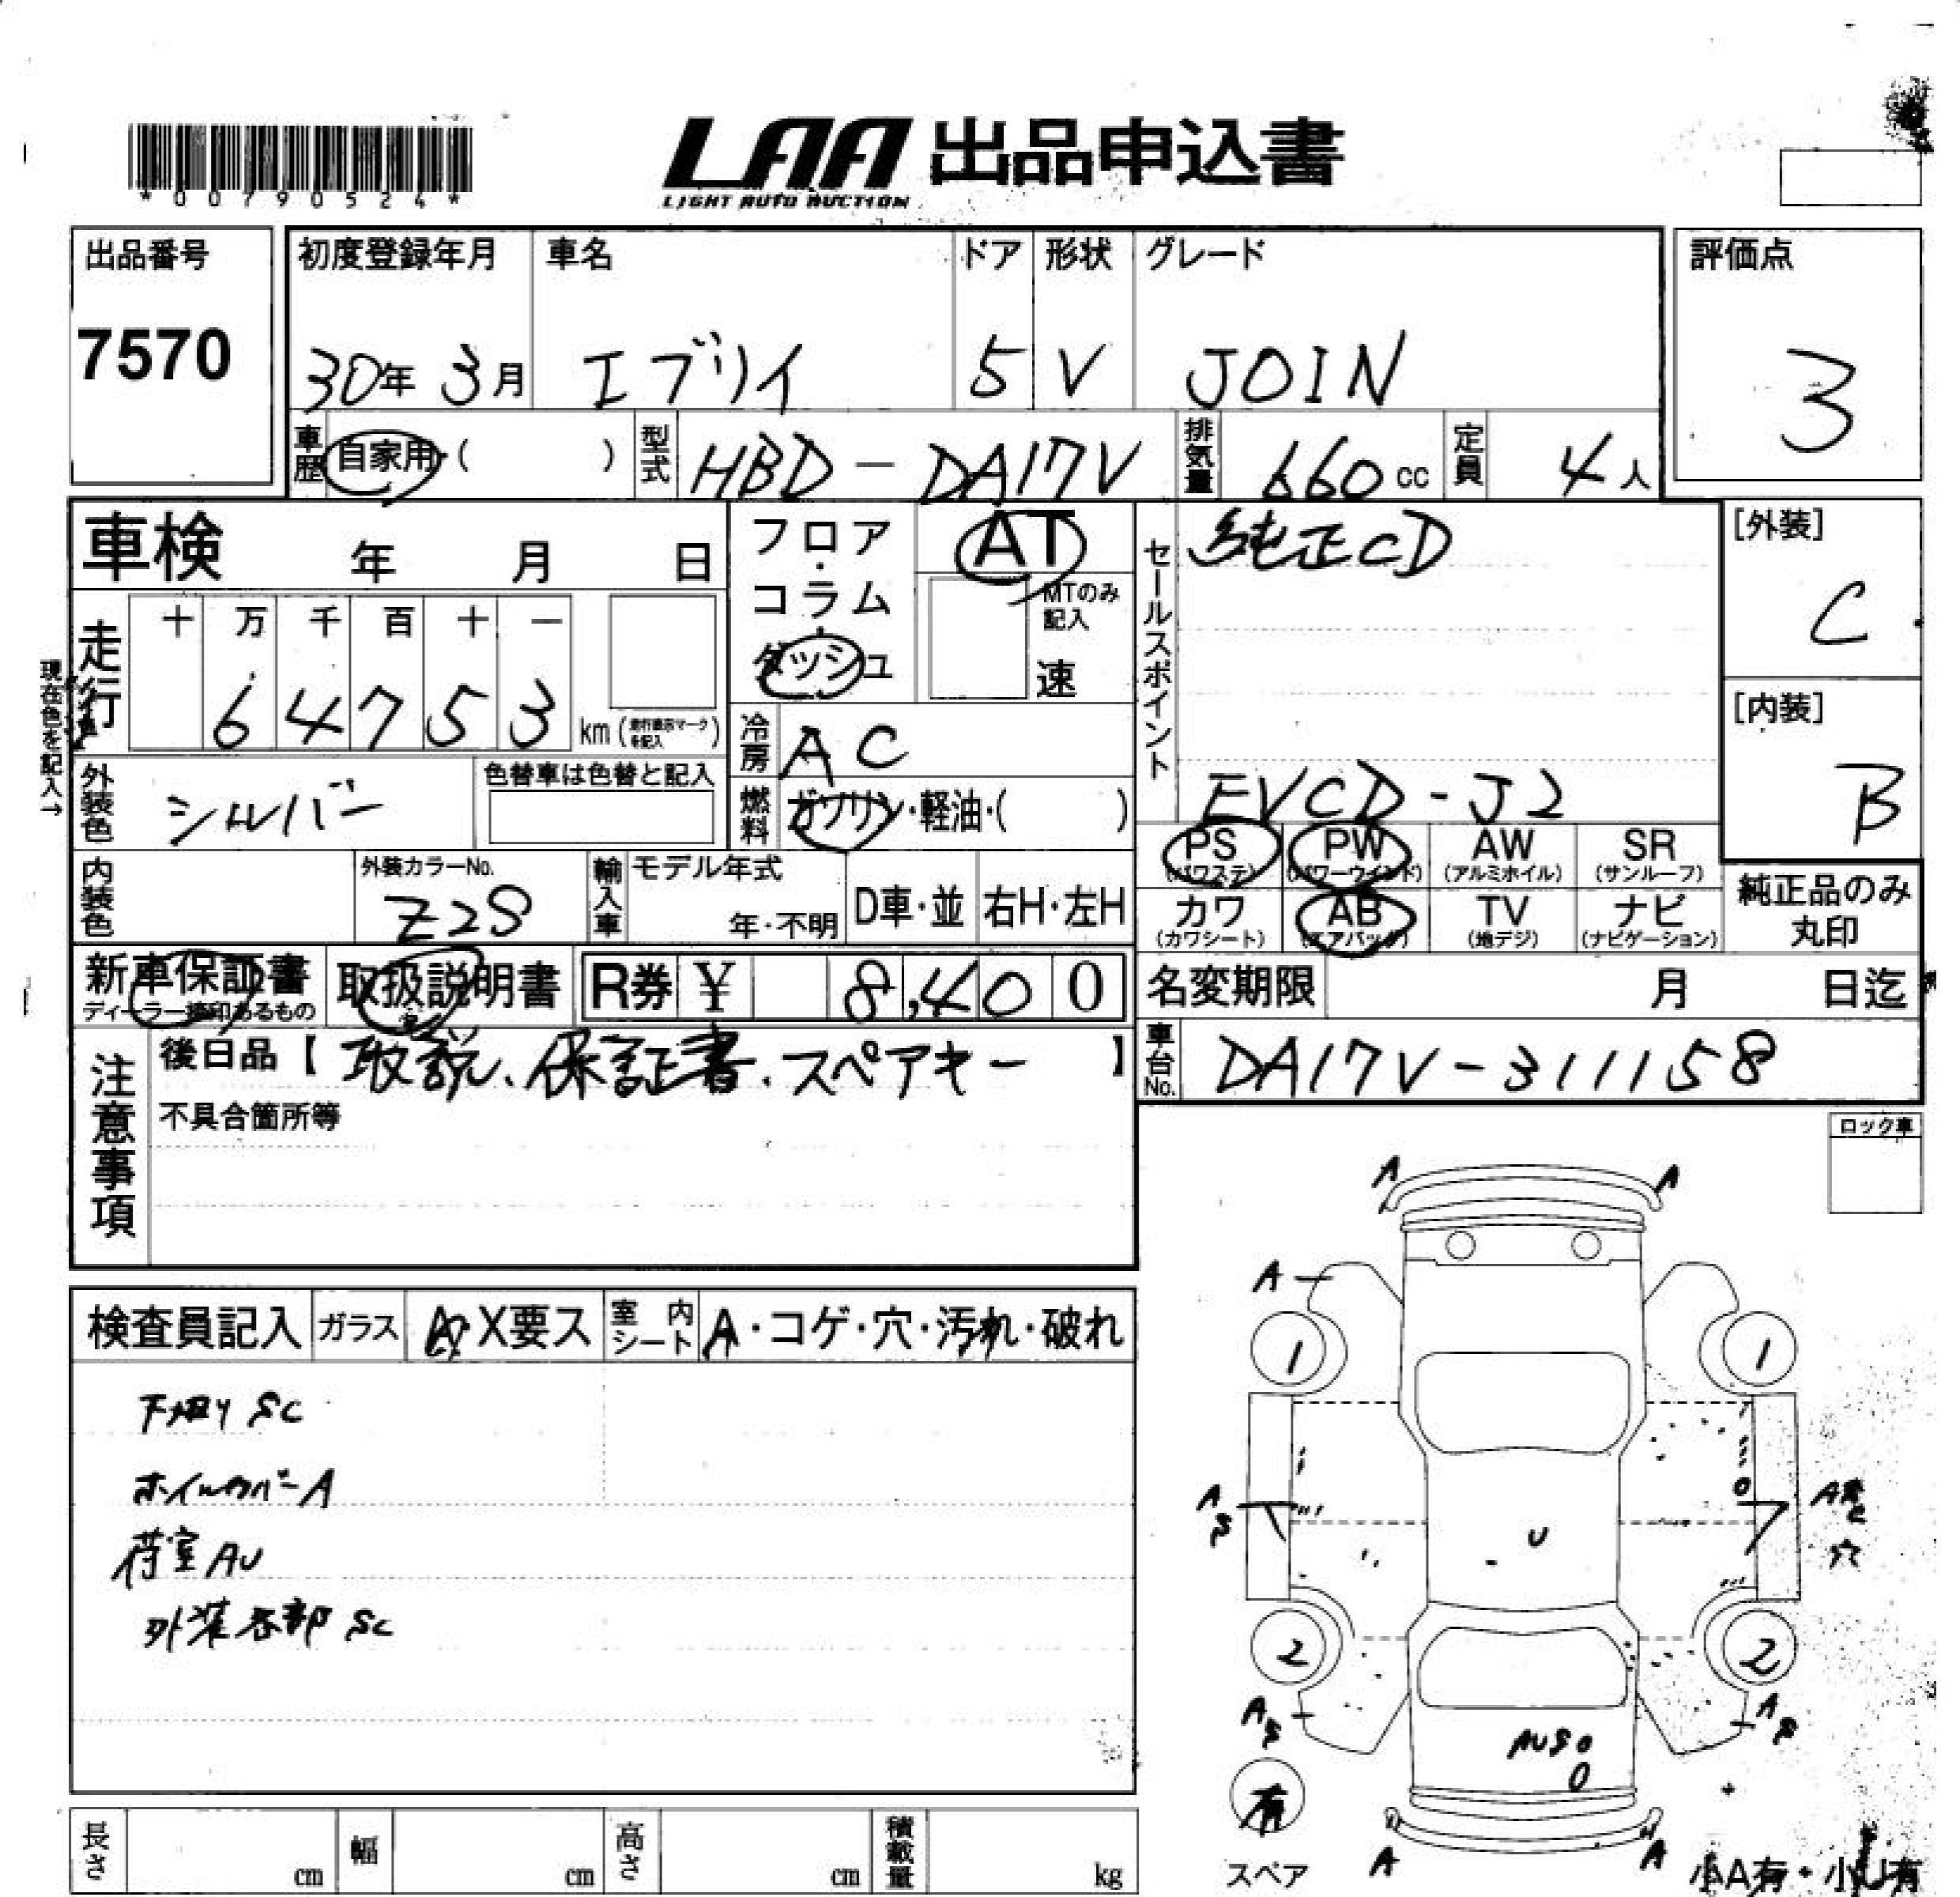 *00790524*
LAA 出品申込書
LIGHT AUTO AUCTION
出品番号 初度登録年月 車名 ドア 形状 グレード 評価点
7570 30年 3月 エブリイ 5 V JOIN 3
車歴 自家用・( ) 型式 HBD-DA17V 排気量 660cc 定員 4人
車検 年 月 日
フロア・コラム・ダッシュ AT
MTのみ記入
速
セールスポイント 純正CD
EVCD-J2
[外装]
C
[内装]
B
現在色を記入→
走行 十 万 千 百 十 一
6 4 7 5 3 km (走行表示マークを記入)
冷房 AC
外装色 シルバー 色替車は色替と記入
燃料 ガソリン・軽油・( )
PS (パワステ) PW (パワーウインド) AW (アルミホイル) SR (サンルーフ)
カワ (カワシート) AB (エアバッグ) TV (地デジ) ナビ (ナビゲーション)
純正品のみ丸印
内装色 外装カラーNo. Z2S 輸入車 モデル年式 年・不明 D車・並 右H・左H
新車保証書 取扱説明書 R券 ¥ 8,400
ディーラー捺印あるもの
名変期限 月 日迄
注意事項 後日品【取説、保証書、スペアキー】
車台No. DA17V-311158
不具合箇所等
ロック車
検査員記入 ガラス A・X要ス 室内シート A・コゲ・穴・汚れ・破れ
下廻り SC
ホイルカバーA
荷室AU
外装各部 SC
A A
A
1 1
A
S
穴
U
2 2
A
S
A
S
AUS
有
スペア
A A
小A有・小U有
長さ cm 幅 cm 高さ cm 積載量 kg